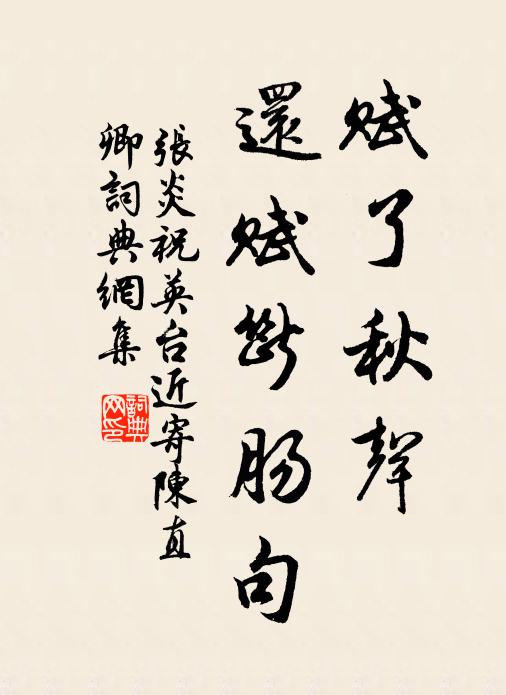 赋了秋聲
還赋斷肠句
張炎祝英台近寄陳直
卿詞典網集
詞典网印